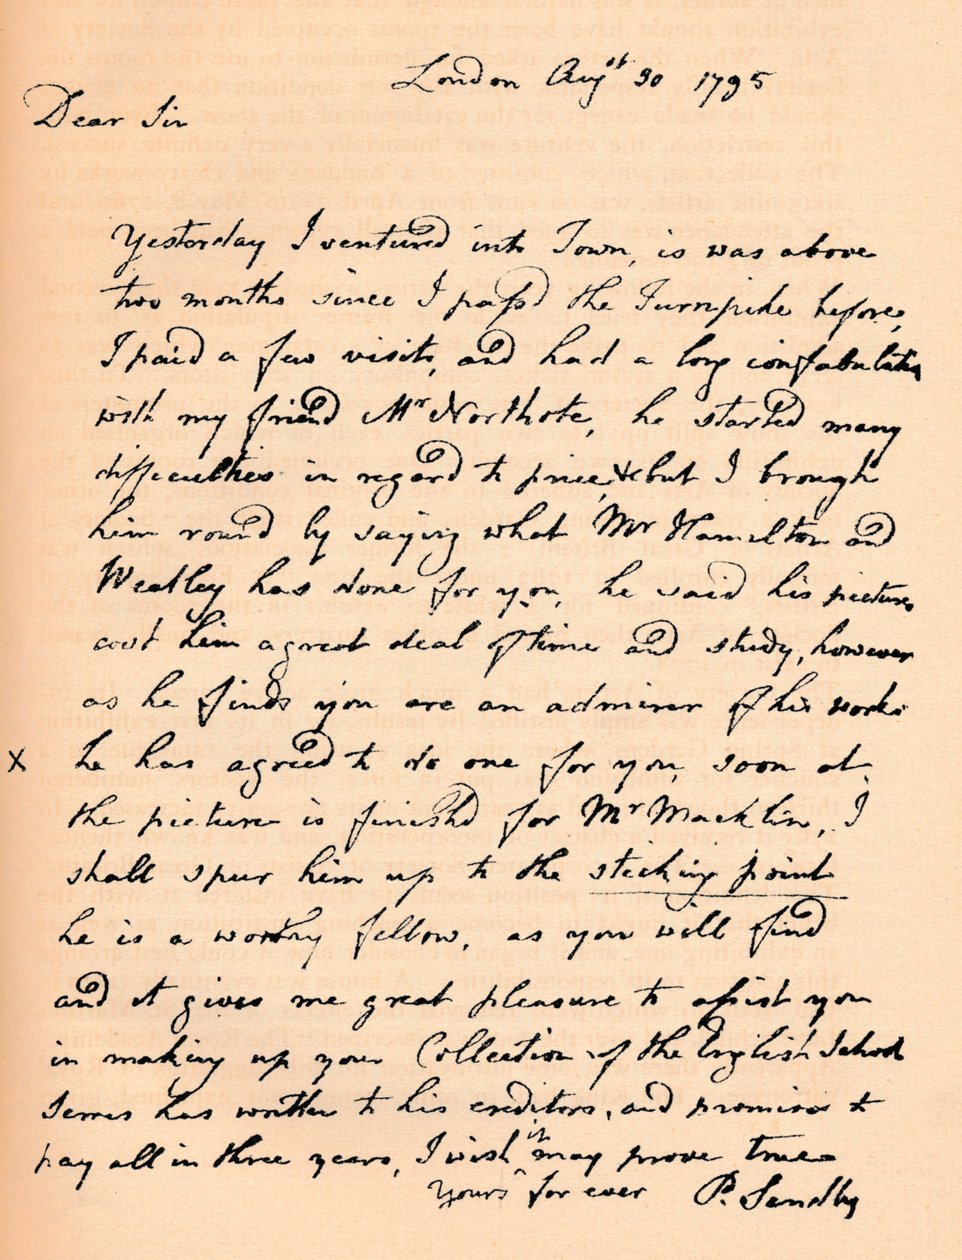 London Augst 30 1795
Dear Sir
Yesterday I ventured into Town, is was above
two months since I pass'd the Turnpike before,
I paid a few visits, and had a long confabulation
with my friend Mr Northote, he started many
difficulties in regard to price, & but I brough
him round by saying what Mr Hamilton and
Weatley has done for you, he said his pictures
cost him a great deal of time and study, however
as he finds you are an admirer of his works
x he has agreed to do one for you, soon as
the picture is finished for Mr Macklin, I
shall spur him up to the sticking point
he is a worthy fellow, as you will find
and it gives me great pleasure to assist you
in making up your Collection of the English School
Serres has written to his creditors, and promises to
pay all in three years, I wish ^it may prove true
Yours for ever P. Sandby